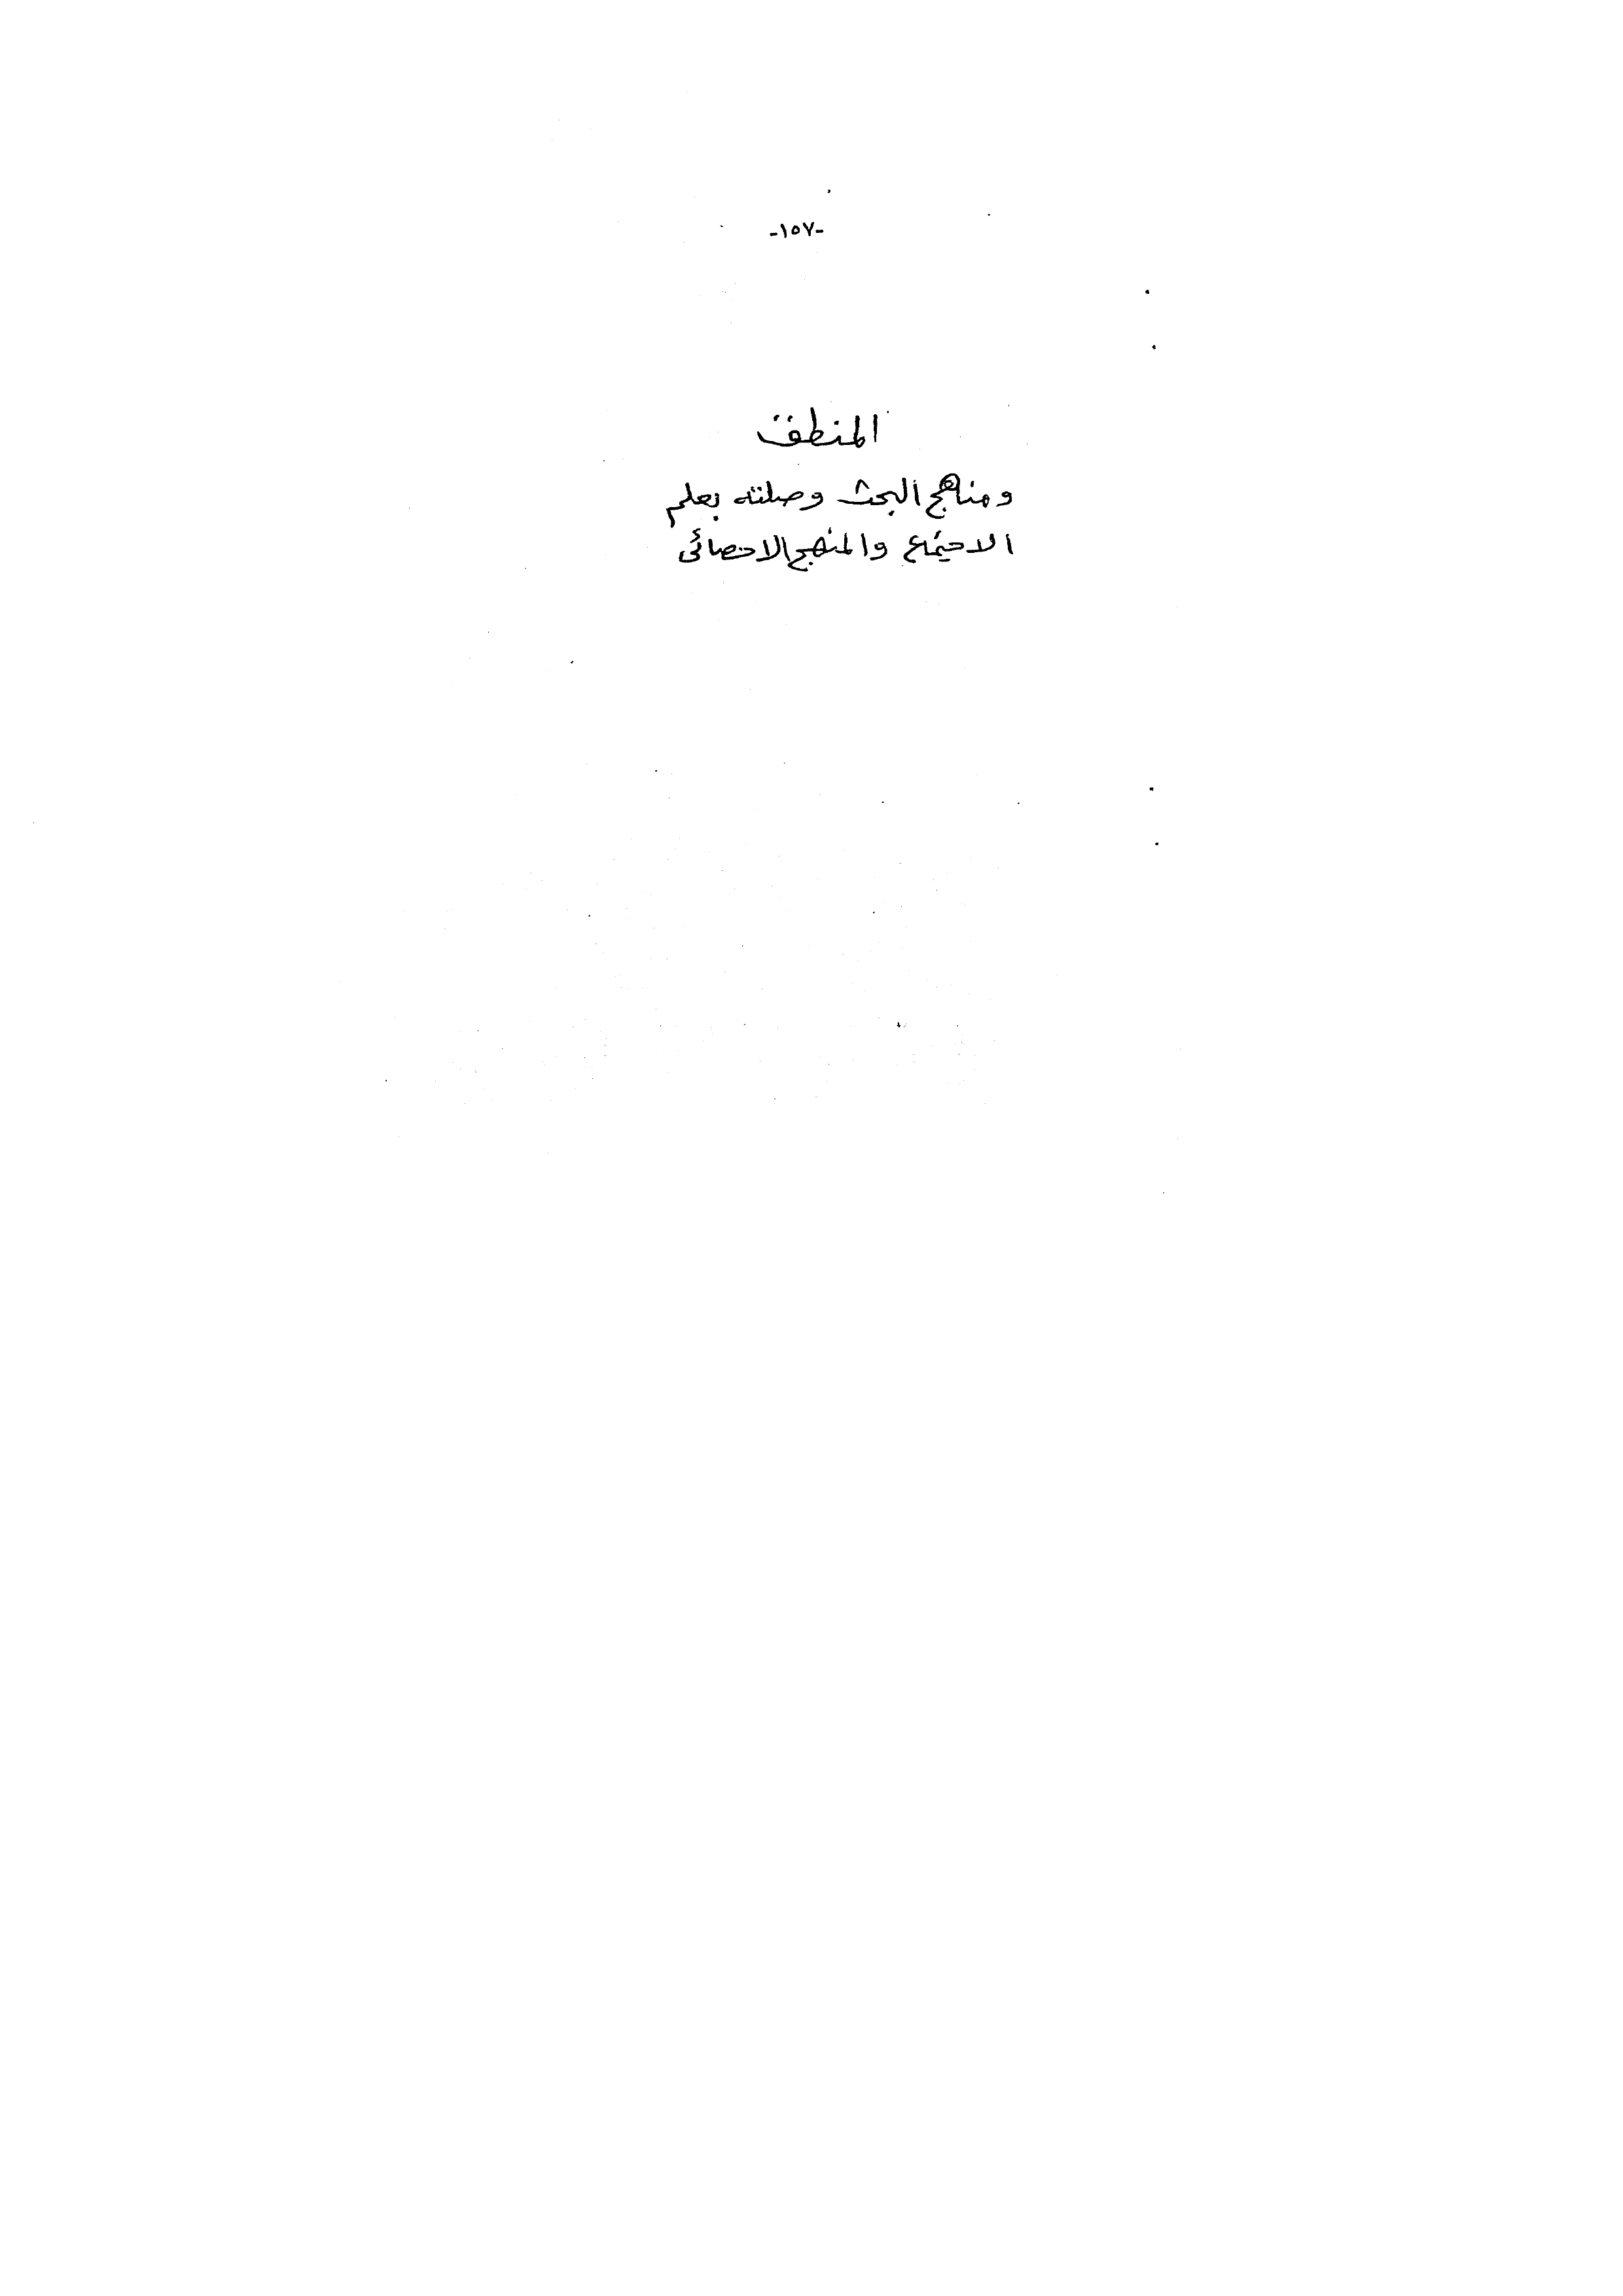 -١٥٧-
المنطق
ومناهج البحث وصلته بعلم
الاجتماع والمنهج الاحصائى